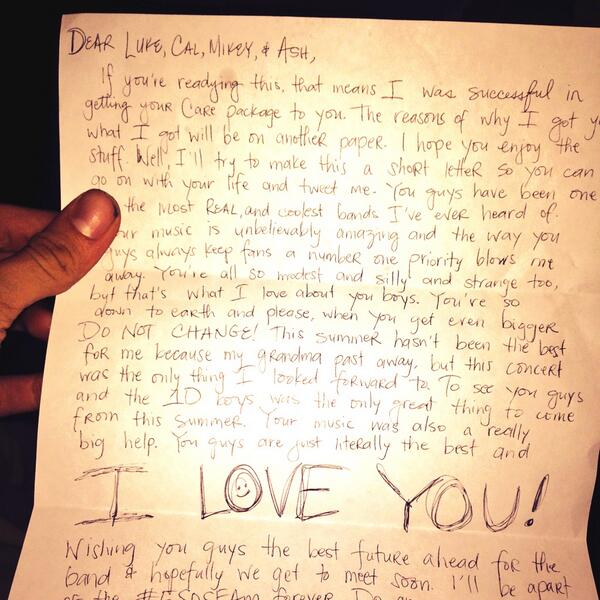 DEAR LUKE, CAL, MIKEY, & ASH,
If you're readying this, that means I was successful in
getting your Care package to you. The reasons of why I got
what I got will be on another paper. I hope you enjoy the
stuff. Well I'll try to make this a short letter so you can
go on with your life and tweet me. You guys have been one
the MOST REAL, and coolest bands I've ever heard of.
music is unbelievably amazing and the way you
guys always keep fans a number one priority blows me
away. You're all so modest and silly and strange too,
but that's what I love about you boys. You're so
down to earth and please, when you get even bigger
DO NOT CHANGE! This summer hasn't been the best
for me because my grandma past away, but this concert
was the only thing I looked forward to. To see you guys
and the 1D boys was the only great thing to come
from this summer. Your music was also a really
big help. You guys are just literally the best and
I LOVE YOU!
Wishing you guys the best future ahead for the
band & hopefully we get to meet soon. I'll be apart
of the forever.